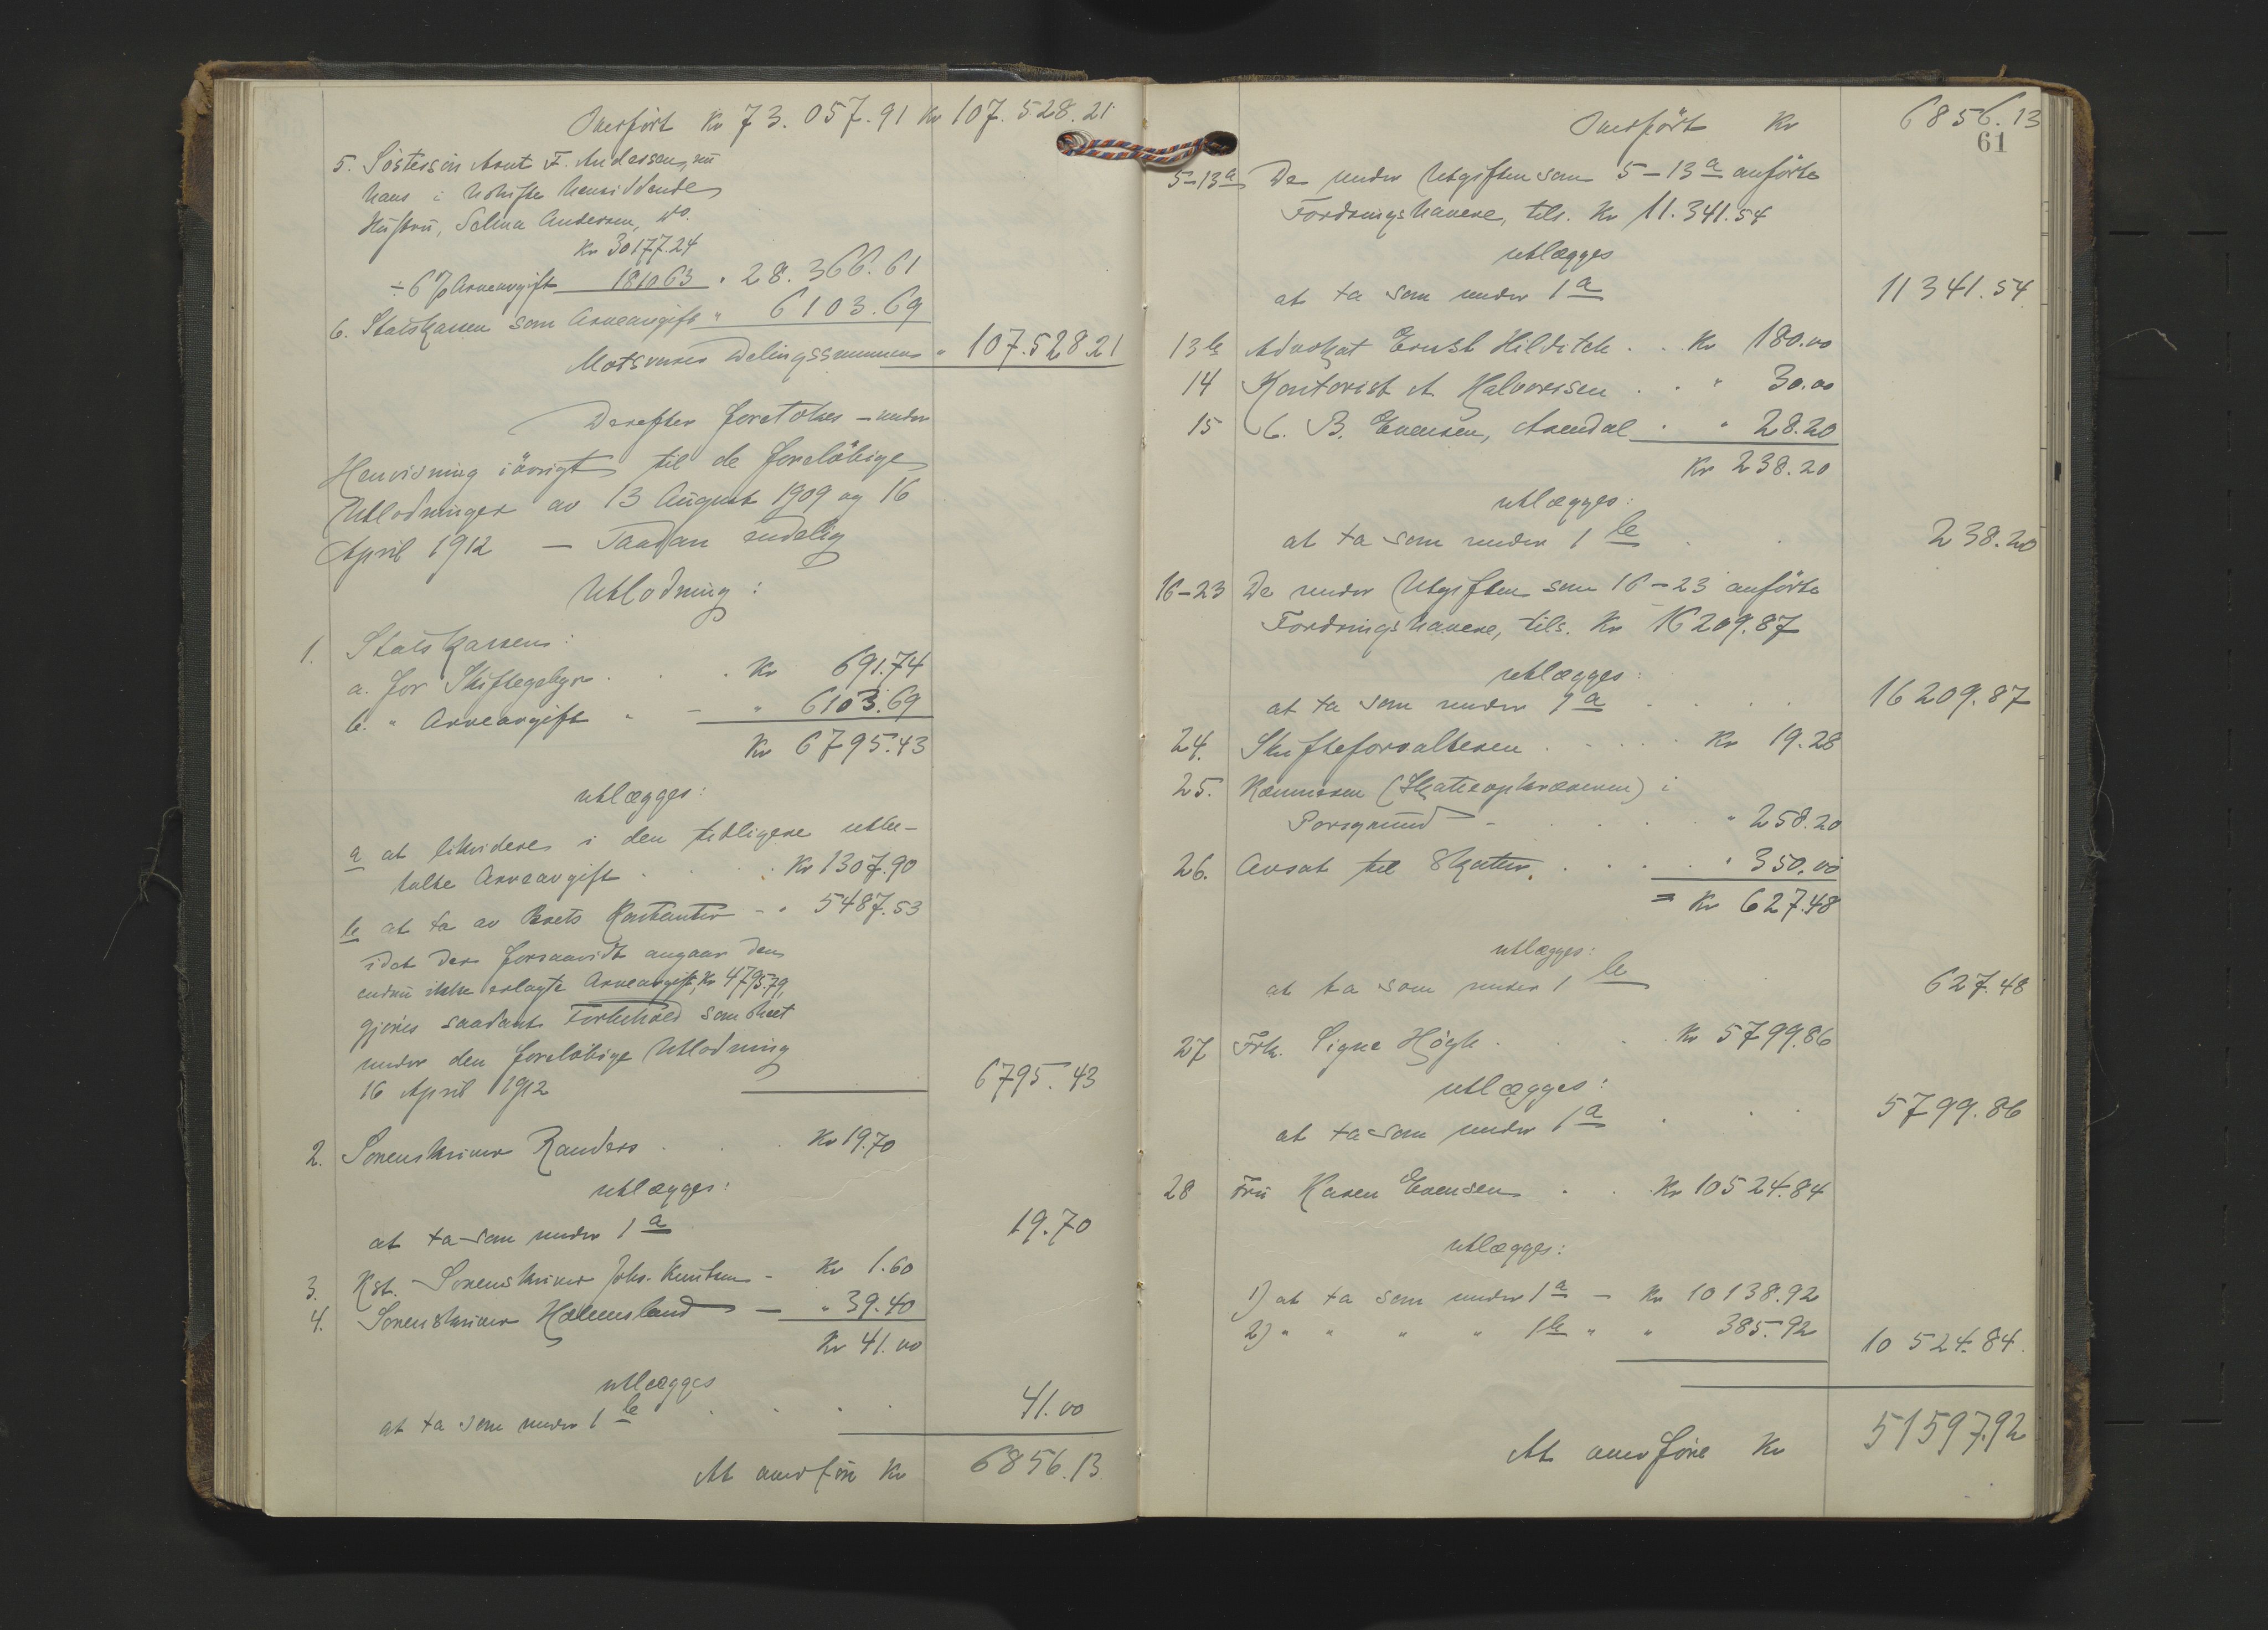 Overført Kr 73.057.91 Kr 107.528.21
5. Søstersøn Arnt F. Andersen, nu
hans i Uskifte hensiddende
Hustru, Selma Andersen, do.
Kr 30177.24
÷ 6 % Arveavgift 1810.63 " 28.366.61
6. Statskassen som Arveavgift " 6103.69
Motsvarer Delingssummen " 107.528.21
Derefter foretokes – under
Henvisning iøvrigt til de foreløbige
Utlodninger av 13 August 1909 og 16
April 1912 – Saadan endelig
Utlodning:
1. Statskassen:
a. for Skiftegebyr . . . Kr 691.74
b. " Arveavgift " – " 6103.69
Kr 6795.43
utlægges:
a at likvidere i den tidligere utbe-
talte Arveavgift . . . Kr 1307.90
b at ta av Boets Kontanter – " 5487.53
idet der forsaavidt angaar den
endnu ikke erlagte Arveavgift, Kr 4795.79,
gjøres saadant Forbehold som skeet
under den foreløbige Utlodning
16 April 1912 6795.43
2. Sorenskriver Randers . . Kr 19.70
utlægges:
at ta som under 1 a 19.70
3. Kst. Sorenskriver Johs. Knutsen – Kr 1.60
4. Sorenskriver Hælmsland – " 39.40
Kr 41.00
utlægges
at ta som under 1 b . . . . 41.00
At overføre Kr 6856.13
61
Overført Kr 6856.13
5–13a De under Utgiften som 5–13 a anførte
Fordringshavere, tils. Kr 11.341.54
utlægges
at ta som under 1 a 11341.54
13b Advokat Ernst Hilditch . . Kr 180.00
14 Kontorist A Halvorsen . . " 30.00
15 C. B. Evensen, Arendal . " 28.20
Kr 238.20
utlægges:
at ta som under 1 b . . 238.20
16–23 De under Utgiften som 16–23 anførte
Fordringshavere, tils. Kr 16209.87
utlægges:
at ta som under 1 a . . . . 16209.87
24. Skifteforvalteren . . . . . Kr 19.28
25. Kæmneren (Skatteopkræveren) i
Porsgrund – . . . . " 258.20
26. Avsat til Skatter. . . . . " 350.00
= Kr 627.48
utlægges:
at ta som under 1 b . 627.48
27 Frk. Signe Høgh . . . . Kr 5799.86
utlægges:
at ta som under 1 a . . . 5799.86
28 Fru Karen Evensen . . . Kr 10524.84
utlægges:
1) at ta som under 1 a – Kr 10138.92
2) " " " " 1 b " " 385.92 10524.84.
At overføre Kr 51597.92